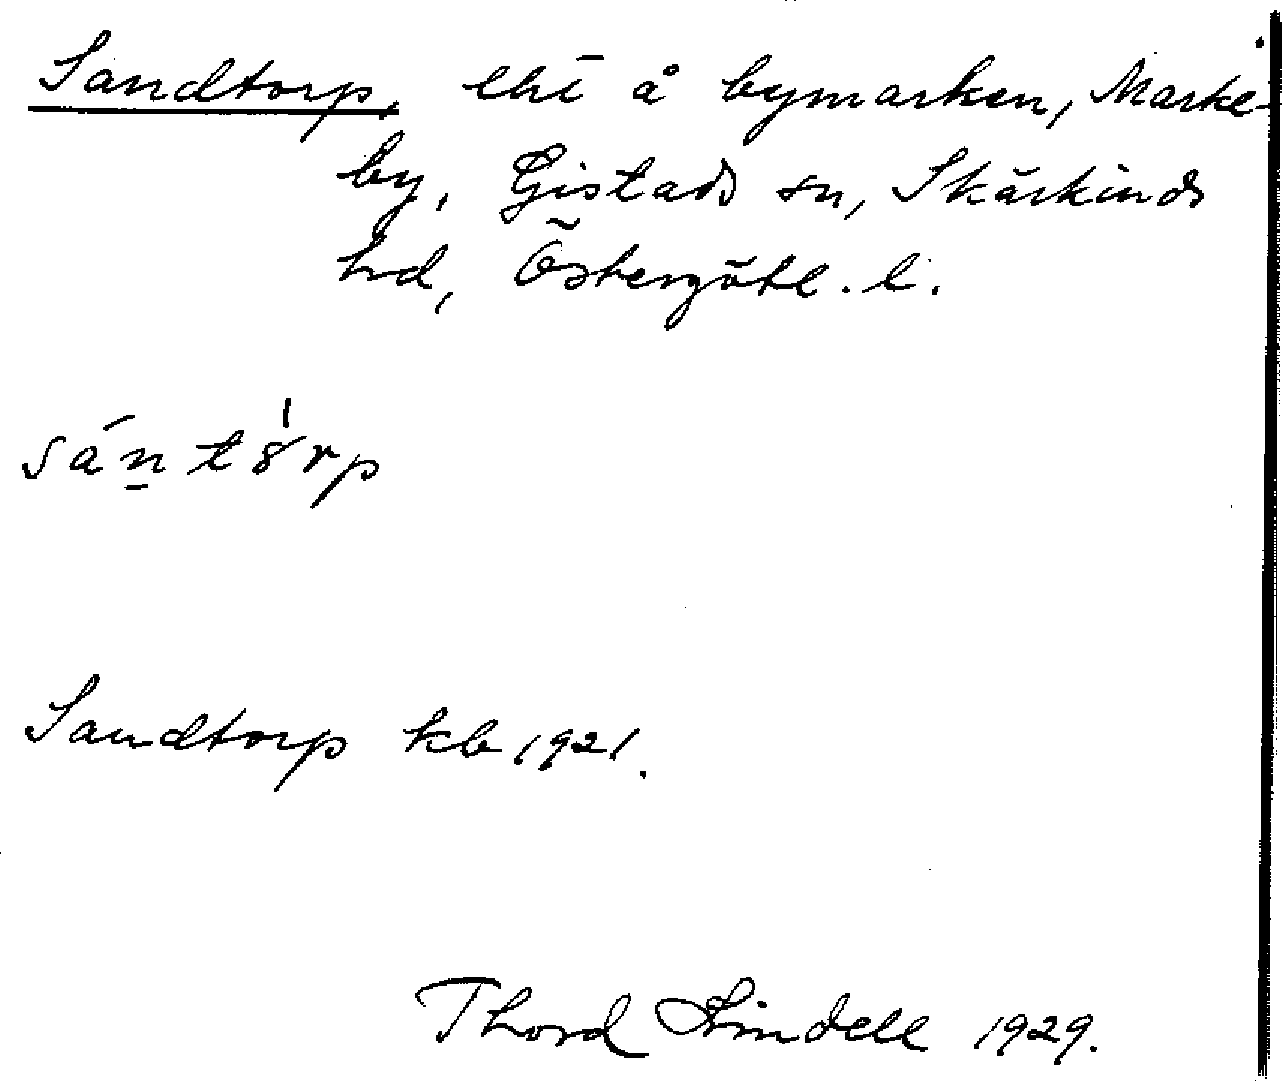 Sandtorp, lht å bymarken, Marke-
by, Gistads sn, Skärkinds
hd, Östergötl. l.
sántö̀rp
Sandtorp kb 1921.
Thord Lindell 1929.